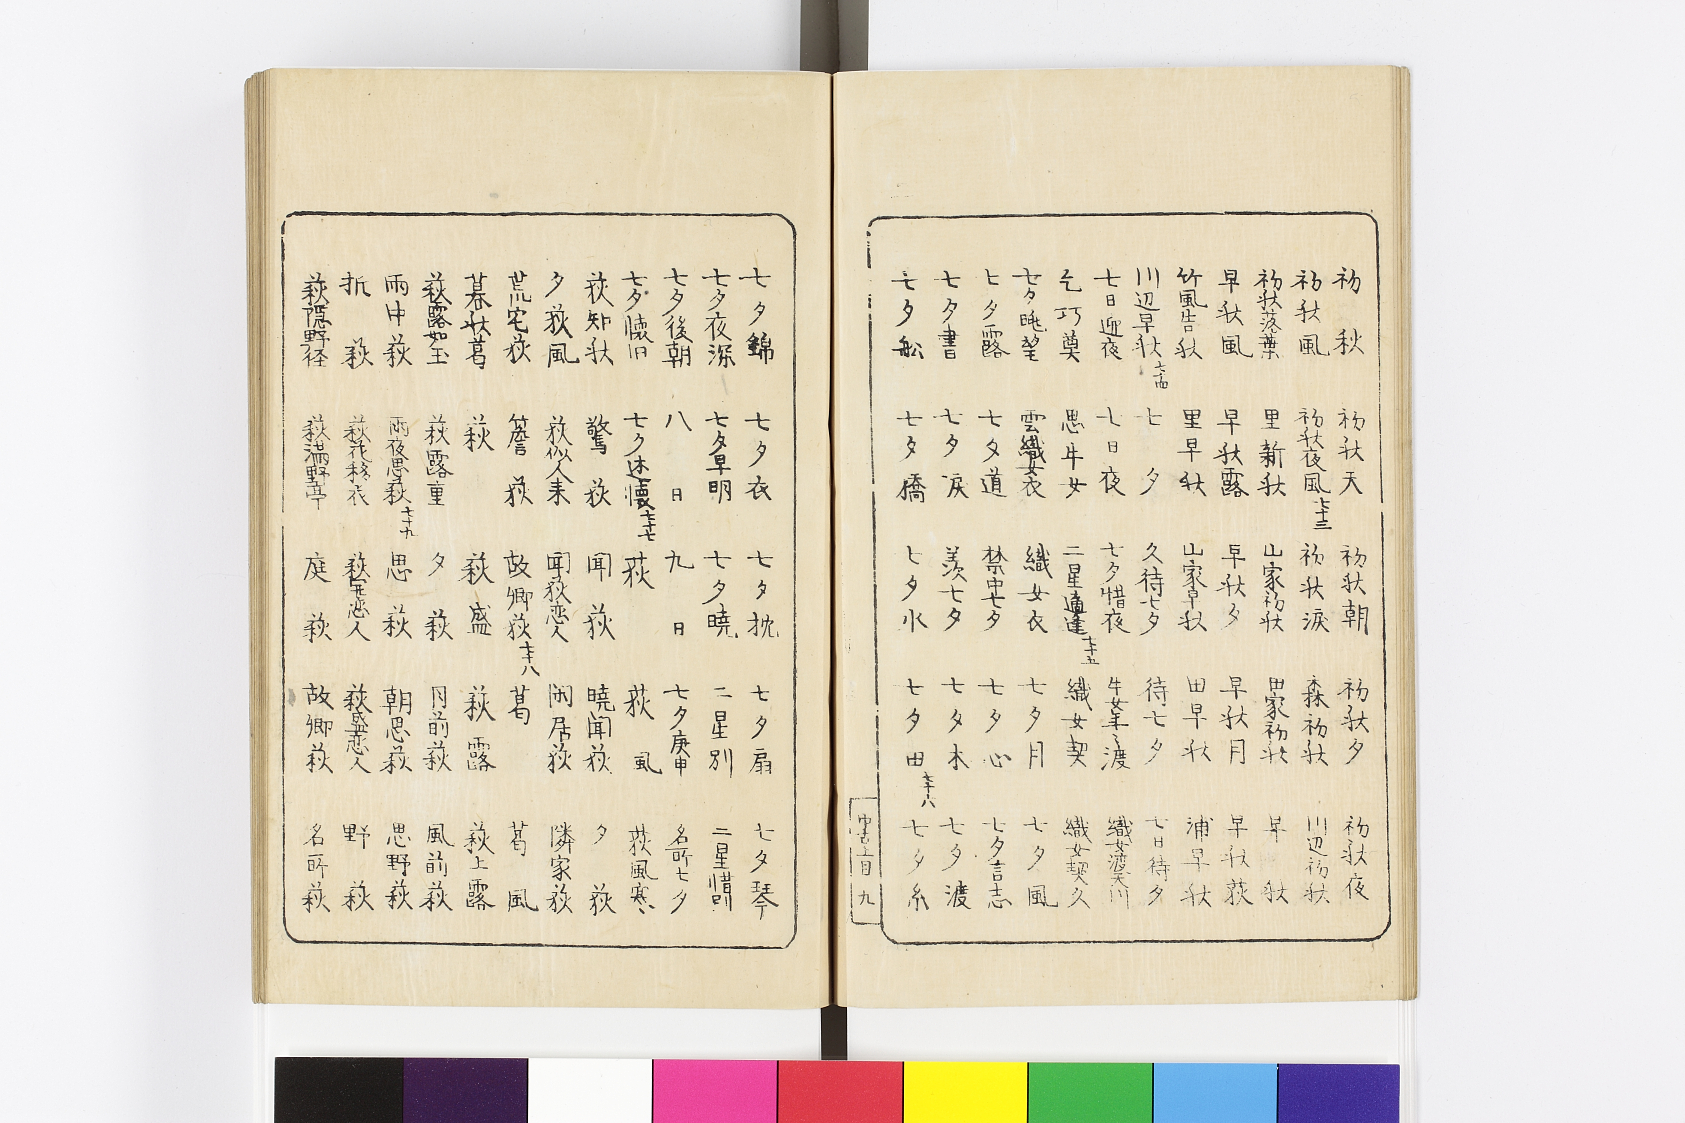 初秋　初秋天　初秋朝　初秋夕　初秋夜
初秋風　初秋夜風七十三　初秋涙　森初秋　川辺初秋
初秋落葉　里新秋　山家初秋　田家初秋　早秋
早秋風　早秋露　早秋夕　早秋月　早秋荻
竹風告秋　里早秋　山家早秋　田早秋　浦早秋
川辺早秋七十四　七夕　久待七夕　待七夕　七日待夕
七日迎夜　七日夜　七夕惜夜　牛女年々渡　織女渡天川
乞巧奠　思牛女　二星適逢七十五　織女契　織女契久
七夕眺望　雲織女衣　織女衣　七夕月　七夕風
七夕露　七夕道　禁中七夕　七夕心　七夕言志
七夕書　七夕涙　羨七夕　七夕木　七夕渡
七夕舩　七夕橋　七夕水　七夕田七十六　七夕糸
九
七夕錦　七夕衣　七夕枕　七夕扇　七夕琴
七夕夜深　七夕早明　七夕暁　二星別　二星惜別
七夕後朝　八日　九日　七夕庚申　名所七夕
七夕懐旧　七夕述懐七十七　荻　荻風　荻風寒
荻知秋　驚荻　聞荻　暁聞荻　夕荻
夕荻風　荻似人来　聞荻恋人　閑居荻　隣家荻
荒宅荻　簷荻　故郷荻七十八　葛　葛風
暮秋葛　萩　萩盛　萩露　萩上露
萩露如玉　萩露重　夕萩　月前萩　風前萩
雨中萩　雨夜思萩七十九　思萩　朝思萩　思野萩
折萩　萩花移衣　萩生恋人　萩盛恋人　野萩
萩隠野径　萩満野亭　庭萩　故郷萩　名所萩